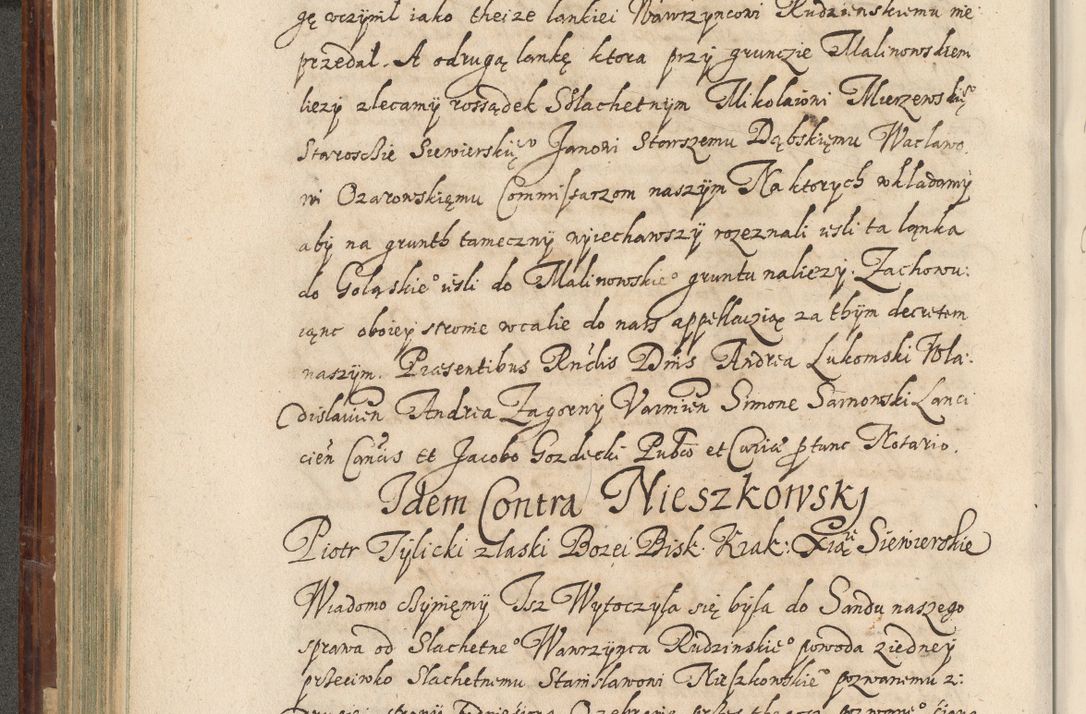 gę vczynił iako theize lankiei Wawrzyncowi Rudzienskiemu nie
przedał. A odrugą lonkę ktora przy grunczie Malinowskiem
liezy zlecamy rossądek Sdlachetnym Mikolaioni Mierzewskię°
Staroscie Siewierskię° Janowi Starszemu Dąbskięmu Waclawo
wi Ozarowskięmu Commissarzom naszym Na ktorych wkladamy
aby na grunth tameczny wyiechawszy rozeznali iesli ta ląnka
do Goląskie° iesli do Malinowskie° gruntu naliezy. Zachowu:
iąnc oboiey stronie wcalie do nass appellacziąę za thym decretem
naszym. Præsentibus Rndis Dnis Andrea Lukomski Wla:
dislauien Andrea Zagorny Varmien Simone Sarnowski Lanci
cien Cancis et Jacobo Gozdecki Pubco et Curiæ ptunc Notario.
Idem Contra Nieszkowskj
Piotr Tylicki złaski Bozei Bisk. Krak: Xiąże Siewierskie
Wiadomo czynięmy Isz Wytoczyła się była do Sandu naszego
sprawa od Slachetne° Wawrzynca Rudzinskie° powoda ziedney
przeciwko Slachetnemu Stanisławowi Nieszkowskie° pozwanemu z: